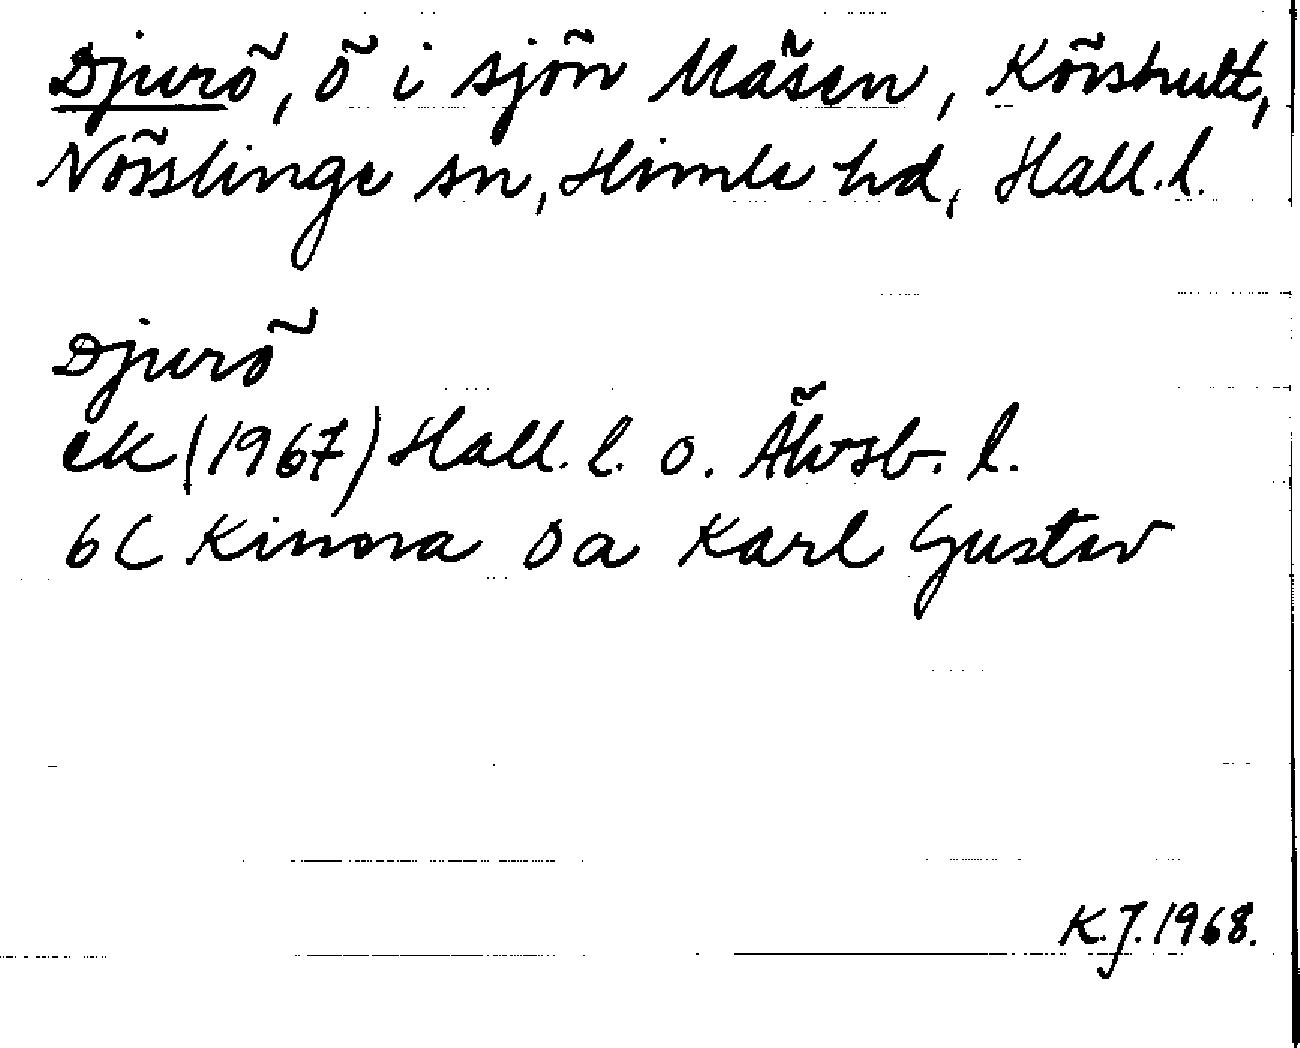 Djurö, ö i sjön Mäsen, Körshult,
Nösslinge sn, Himle hd, Hall. l.
Djurö
ek (1967) Hall. l. o. Älvsb. l.
6C Kinna Öa Karl Gustav
K.J. 1968.